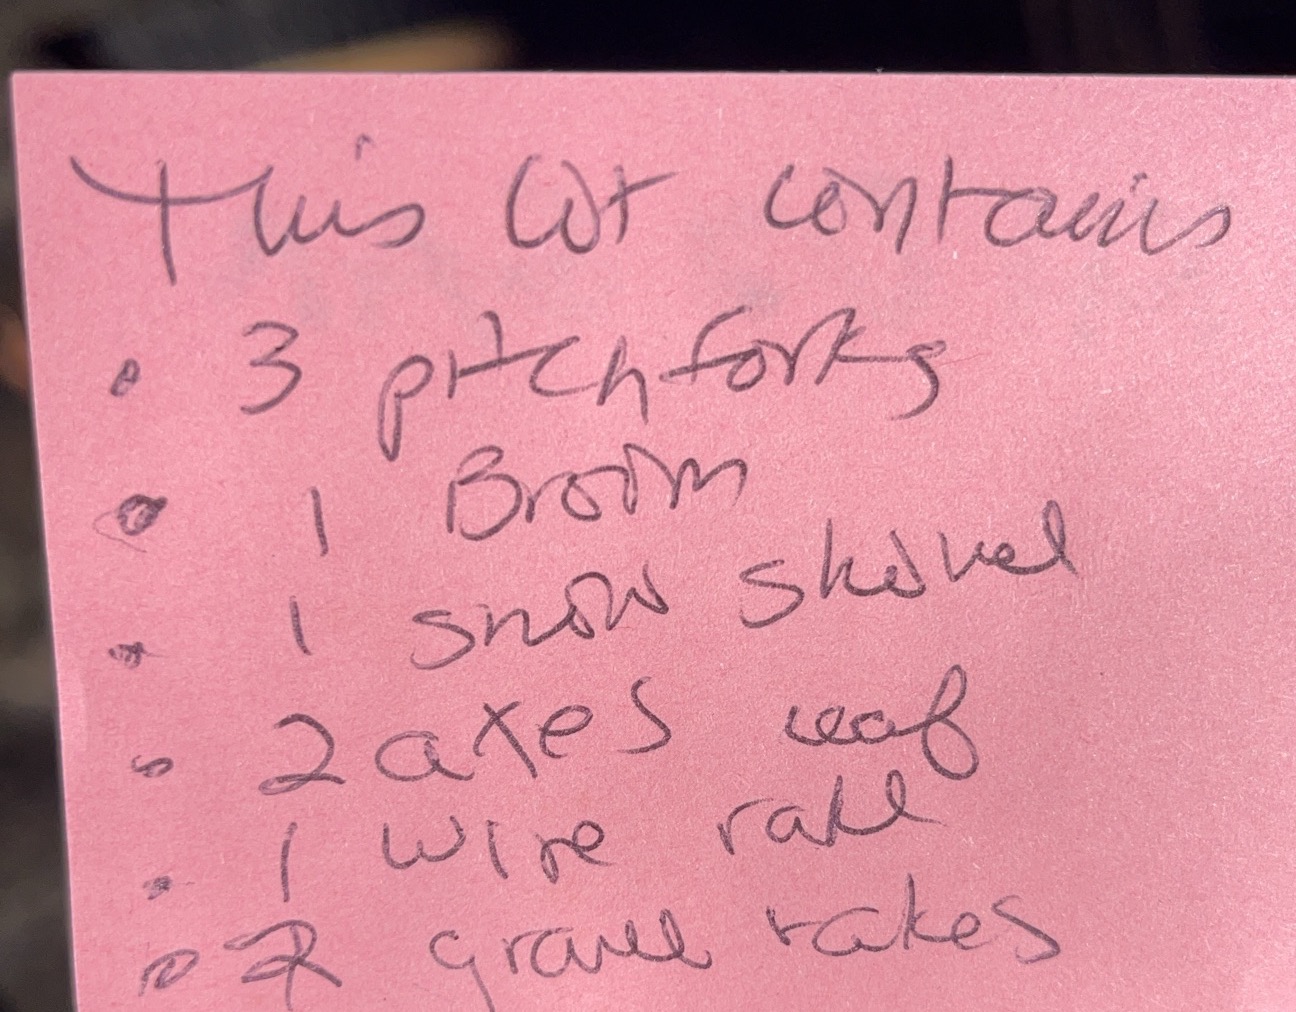 This lot contains
• 3 pitchforks
• 1 Broom
• 1 snow shovel
• 2 axes leaf
• 1 wire rake
• 2 gravel rakes